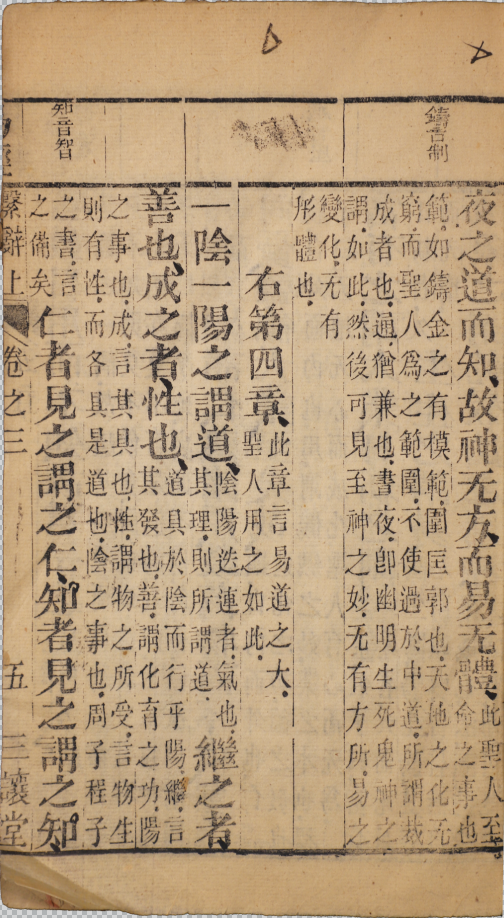 鑄音制
夜之道而知、故神无方、而易无體、此聖人至
命之事也
範如鑄金之有模範圍匡郭也天地之化无
窮而聖人爲之範圍不使過於中道所謂裁
成者也通猶兼也晝夜卽幽明生死鬼神之
謂如此然後可見至神之妙无有方所易之
變化无有
形體也
右第四章、此章言易道之大
聖人用之如此
一陰一陽之謂道、陰陽迭連者氣也
其理則所謂道
繼之者、
善也、成之者、性也、道具於陰而行乎陽繼言
其發也善謂化育之功陽
之事也成言其具也性謂物之所受言物生
則有性而各具是道也陰之事也周子程子
知音智
之書言
之備矣
仁者見之謂之仁、知者見之謂之知、
繫辭上 卷之三 五 三讓堂